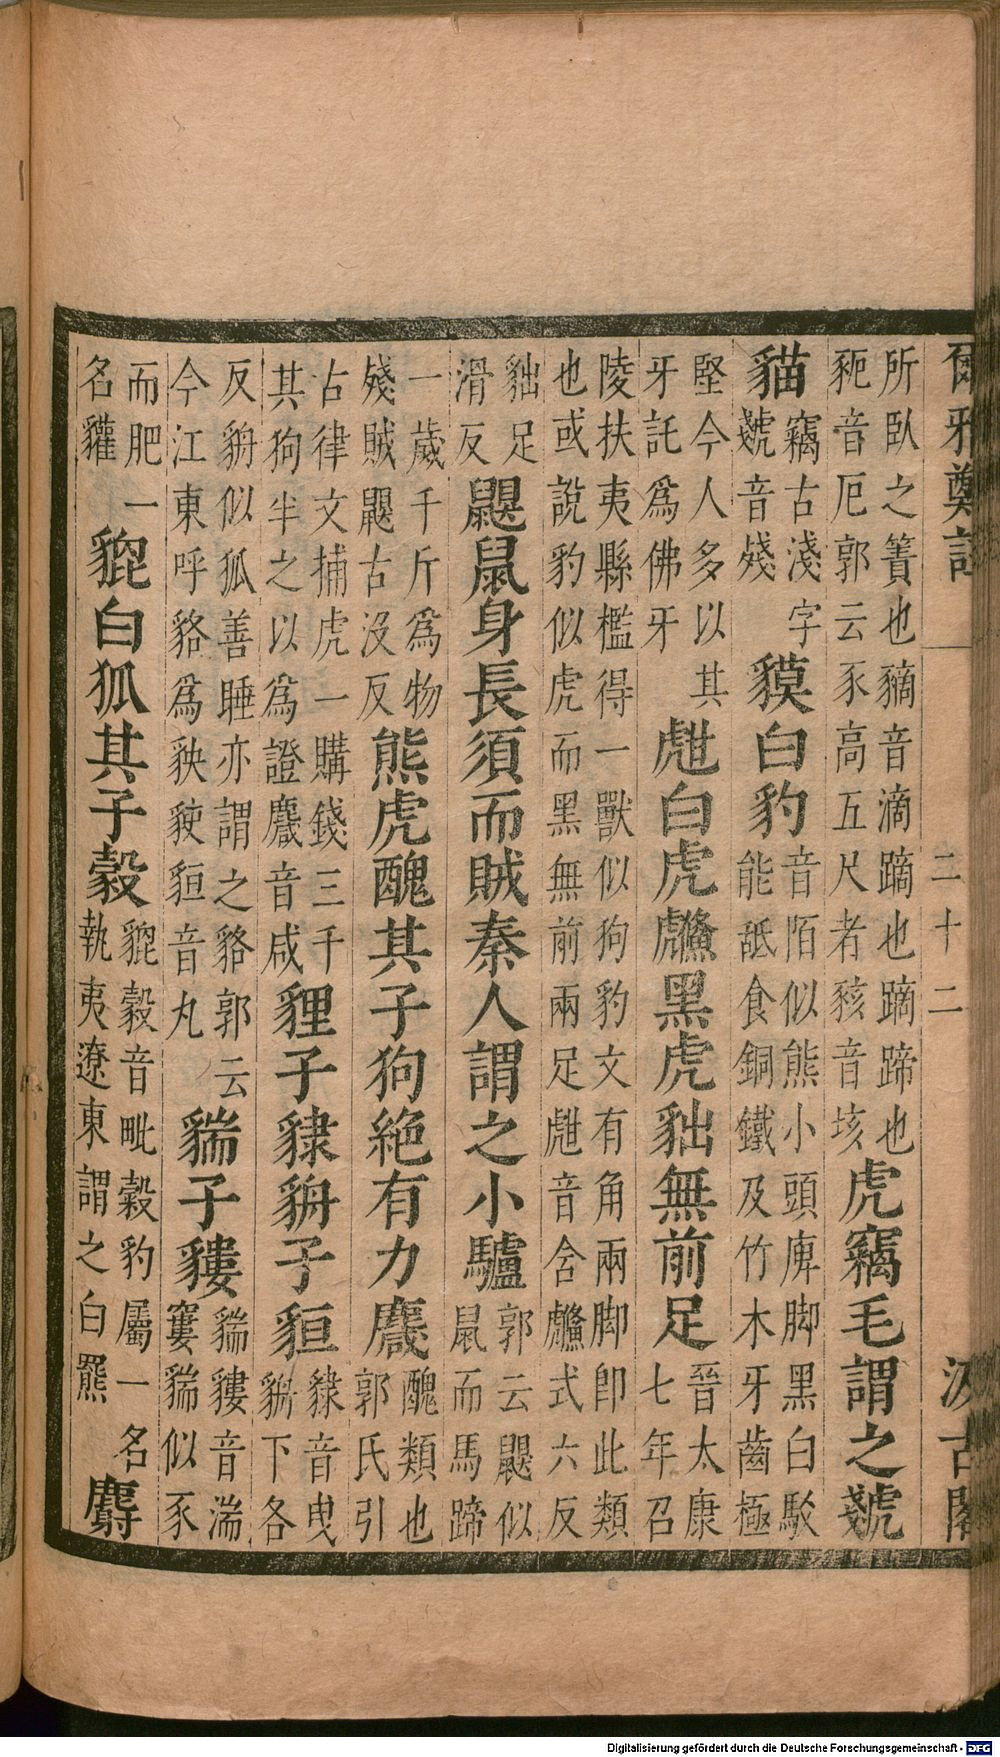 爾雅鄭註 二十二 汲古閣
所臥之簀也豴音滴蹢也蹢蹄也
豟音厄郭云豕高五尺者豥音垓
虎竊毛謂之虦
貓
竊古淺字
虦音殘
貘白豹
音陌似熊小頭庳脚黑白駁
能舐食銅鐵及竹木牙齒極
堅今人多以其
牙託爲佛牙
甝白虎虪黑虎貀無前足
晉太康
七年召
陵扶夷縣檻得一獸似狗豹文有角兩脚即此類
也或說豹似虎而黑無前兩足甝音含虪式六反
貀足
滑反
鼳鼠身長須而賊秦人謂之小驢
郭云鼳似
鼠而馬蹄
一歲千斤爲物
殘賊鼳古沒反
熊虎醜其子狗絕有力麙
醜類也
郭氏引
占律文捕虎一購錢三千
其狗半之以爲證麙音咸
貍子貄貈子貆
貄音曳
貈下各
反貈似狐善睡亦謂之貉郭云
今江東呼貉爲䝟𧳖貆音丸
貒子貗
貒貗音湍
窶貒似豕
而肥一
名貛
貔白狐其子豰
貔豰音毗縠豹屬一名
執夷遼東謂之白羆
麝
Digitalisierung gefördert durch die Deutsche Forschungsgemeinschaft - DFG